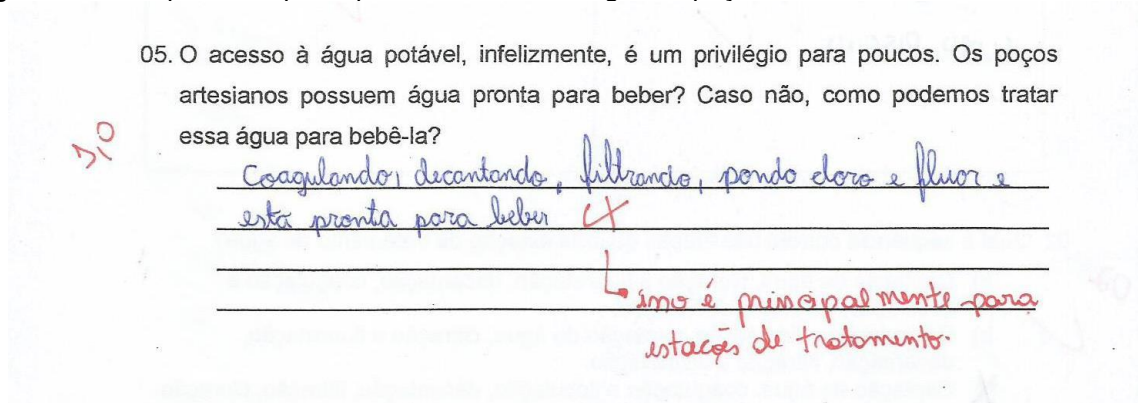 05. O acesso à água potável, infelizmente, é um privilégio para poucos. Os poços
artesianos possuem água pronta para beber? Caso não, como podemos tratar
essa água para bebê-la?
1,0
Coagulando, decantando, filtrando, pondo cloro e fluor e
está pronta para beber
isso é principalmente para
estações de tratamento.